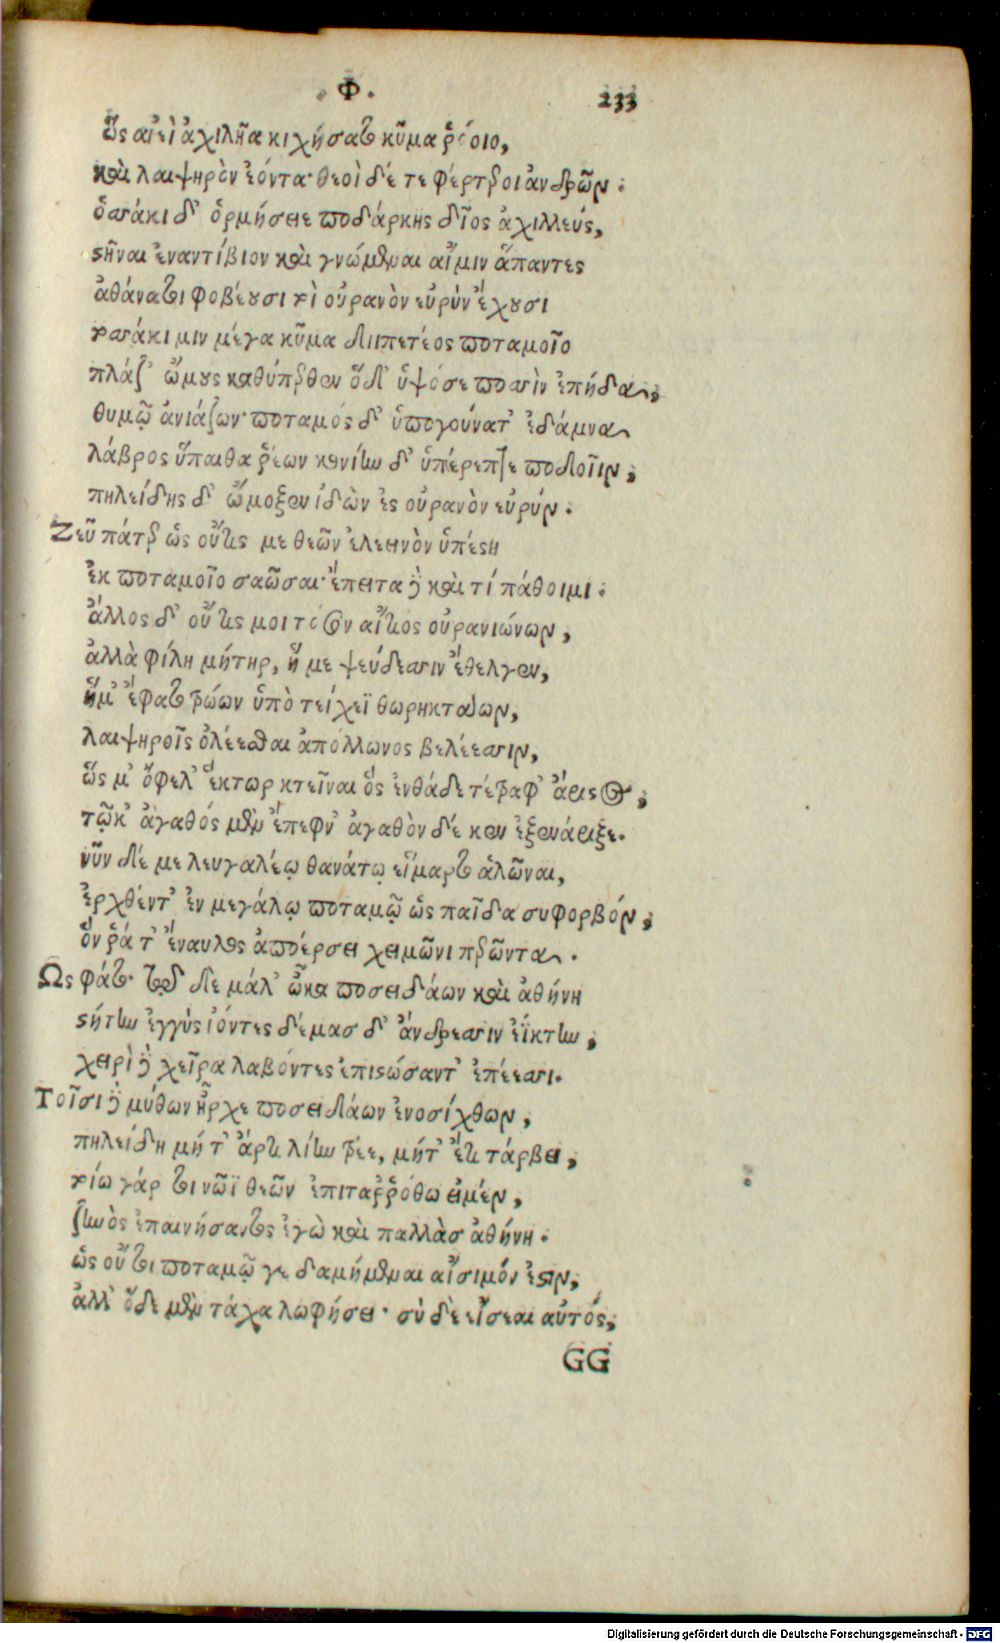 .Φ. 233
ὣς αἰεὶ ἀχιλῆα κιχήσατο κῦμα ῥόοιο,
καὶ λαιψηρὸν ἐόντα· θεοὶ δέ τε φέρτεροι ἀνδρῶν.
ὁσσάκι δ' ὁρμήσειε ποδάρκης δῖος ἀχιλλεύς,
στῆναι ἐναντίβιον καὶ γνώμεναι αἴ μιν ἅπαντες
ἀθάνατοι φοβέουσι τοὶ οὐρανὸν εὐρὺν ἔχουσι
τοσσάκι μιν μέγα κῦμα διιπετέος ποταμοῖο
πλάζ' ὤμους καθύπερθεν ὅδ' ὑψόσε ποσσὶν ἐπήδα,
θυμῷ ἀνιάζων· ποταμός δ' ὑπογούνατ' ἐδάμνα
λάβρος ὕπαιθα ῥέων κονίην δ' ὑπέρεπτε ποδοῖιν,
πηλείδης δ' ᾤμοξεν ἰδὼν ἐς οὐρανὸν εὐρύν.
Ζεῦ πάτερ ὡς οὔτις με θεῶν ἐλεεινὸν ὑπέστη
ἐκ ποταμοῖο σαῶσαι· ἔπειτα δὲ καὶ τί πάθοιμι.
ἄλλος δ' οὔτις μοι τόσον αἴτιος οὐρανιώνων,
ἀλλὰ φίλη μήτηρ, ἥ με ψεύδεσσιν ἔθελγεν,
ἥ μ' ἔφατο τρώων ὑπὸ τείχεϊ θωρηκτάων,
λαιψηροῖς ὀλέεσθαι ἀπόλλωνος βελέεσσιν,
ὥς μ' ὄφελ' ἕκτωρ κτεῖναι ὃς ἐνθάδε τέτραφ' ἄριστος,
τῷ κ' ἀγαθός μὲν ἔπεφν' ἀγαθὸν δέ κεν ἐξενάριξε.
νῦν δέ με λευγαλέῳ θανάτῳ εἵμαρτο ἁλῶναι,
ἐρχθέντ' ἐν μεγάλῳ ποταμῷ ὡς παῖδα συφορβόν,
ὅν ῥά τ' ἔναυλος ἀποέρσει χειμῶνι περῶντα.
Ως φάτο· τῷ δὲ μάλ' ὦκα ποσειδάων καὶ ἀθήνη
στήτην ἐγγὺς ἰόντες δέμας δ' ἄνδρεσσιν ἐΐκτην,
χειρὶ δὲ χεῖρα λαβόντες ἐπιστώσαντ' ἐπέεσσι.
Τοῖσι δὲ μύθων ἦρχε ποσειδάων ἐνοσίχθων,
πηλείδη μή τ' ἄρτι λίην τρέε, μήτ' ἔτι τάρβει,
τοίω γάρ τοι νῶϊ θεῶν ἐπιταῤῥόθω εἰμέν,
ζηνὸς ἐπαινήσαντος ἐγὼ καὶ παλλὰς ἀθήνη.
ὡς οὔτοι ποταμῷ γε δαμήμεναι αἴσιμόν ἐστιν,
ἀλλ' ὅδε μὲν τάχα λωφήσει· σὺ δὲ εἴσεαι αὐτός,
GG
Digitalisierung gefördert durch die Deutsche Forschungsgemeinschaft - DFG